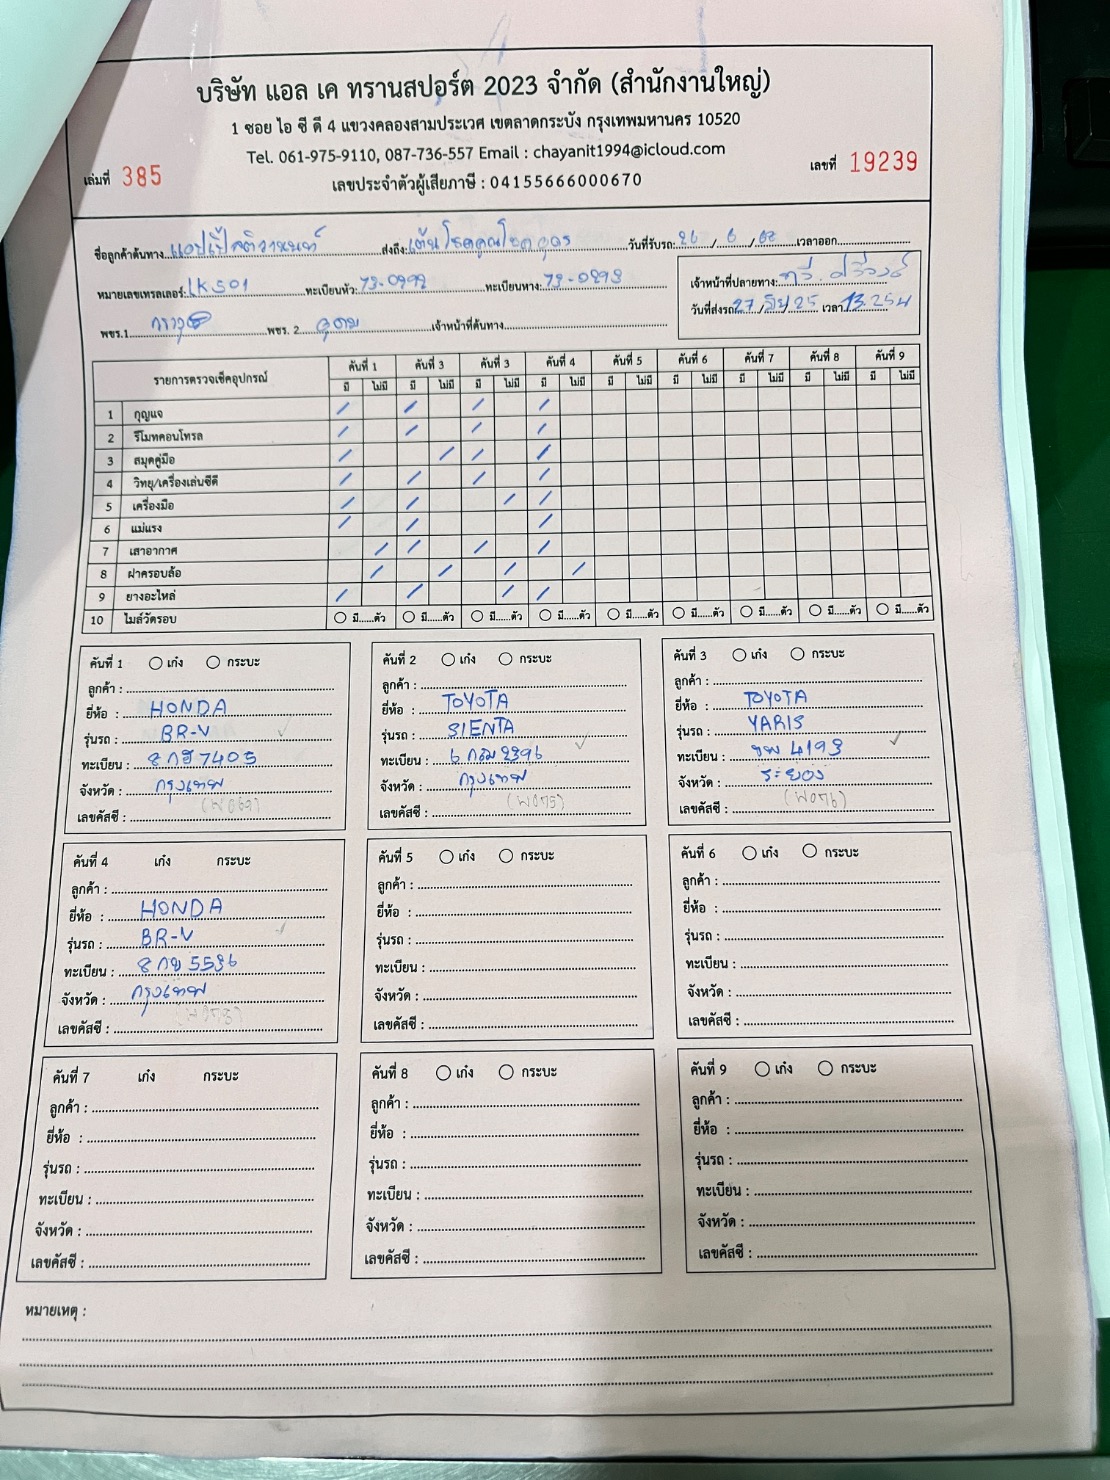 บริษัท แอล เค ทรานสปอร์ต 2023 จำกัด (สำนักงานใหญ่)
1 ซอย ไอ ซี ดี 4 แขวงคลองสามประเวศ เขตลาดกระบัง กรุงเทพมหานคร 10520
Tel. 061-975-9110, 087-736-557 Email : chayanit1994@icloud.com
เล่มที่ 385 เลขประจำตัวผู้เสียภาษี : 04155666000670 เลขที่ 19239
ชื่อลูกค้าต้นทาง ส่งถึง: วันที่รับรถ: 26/6/68 เวลาออก
หมายเลขเทรลเลอร์: LKS01 ทะเบียนหัว: ทะเบียนหาง: เจ้าหน้าที่ปลายทาง:
พขร.1 พขร. 2 อุดม เจ้าหน้าที่ต้นทาง วันที่ส่งรถ 27 มิย 25 เวลา 13.25น
รายการตรวจเช็คอุปกรณ์ คันที่ 1 คันที่ 3 คันที่ 3 คันที่ 4 คันที่ 5 คันที่ 6 คันที่ 7 คันที่ 8 คันที่ 9
มี ไม่มี มี ไม่มี มี ไม่มี มี ไม่มี มี ไม่มี มี ไม่มี มี ไม่มี มี ไม่มี มี ไม่มี
1 กุญแจ / / / /
2 รีโมทคอนโทรล / / / /
3 สมุดคู่มือ / / / /
4 วิทยุ/เครื่องเล่นซีดี / / / /
5 เครื่องมือ / / / /
6 แม่แรง / / /
7 เสาอากาศ / / / /
8 ฝาครอบล้อ / / / /
9 ยางอะไหล่ / / / /
10 ไมล์วัดรอบ มี......ตัว มี......ตัว มี......ตัว มี......ตัว มี......ตัว มี......ตัว มี......ตัว มี......ตัว มี......ตัว
คันที่ 1 เก๋ง กระบะ
ลูกค้า :
ยี่ห้อ : HONDA
รุ่นรถ : BR-V
ทะเบียน : 8 กฮ 7405
จังหวัด : กรุงเทพ
เลขคัสซี :
คันที่ 2 เก๋ง กระบะ
ลูกค้า :
ยี่ห้อ : TOYOTA
รุ่นรถ : SIENTA
ทะเบียน : 6 กฌ 2396
จังหวัด : กรุงเทพ
เลขคัสซี : (W075)
คันที่ 3 เก๋ง กระบะ
ลูกค้า :
ยี่ห้อ : TOYOTA
รุ่นรถ : YARIS
ทะเบียน : 4193
จังหวัด : ระยอง
เลขคัสซี : (W076)
คันที่ 4 เก๋ง กระบะ
ลูกค้า :
ยี่ห้อ : HONDA
รุ่นรถ : BR-V
ทะเบียน : 8 กย 5536
จังหวัด : กรุงเทพ
เลขคัสซี :
คันที่ 5 เก๋ง กระบะ
ลูกค้า :
ยี่ห้อ :
รุ่นรถ :
ทะเบียน :
จังหวัด :
เลขคัสซี :
คันที่ 6 เก๋ง กระบะ
ลูกค้า :
ยี่ห้อ :
รุ่นรถ :
ทะเบียน :
จังหวัด :
เลขคัสซี :
คันที่ 7 เก๋ง กระบะ
ลูกค้า :
ยี่ห้อ :
รุ่นรถ :
ทะเบียน :
จังหวัด :
เลขคัสซี :
คันที่ 8 เก๋ง กระบะ
ลูกค้า :
ยี่ห้อ :
รุ่นรถ :
ทะเบียน :
จังหวัด :
เลขคัสซี :
คันที่ 9 เก๋ง กระบะ
ลูกค้า :
ยี่ห้อ :
รุ่นรถ :
ทะเบียน :
จังหวัด :
เลขคัสซี :
หมายเหตุ :